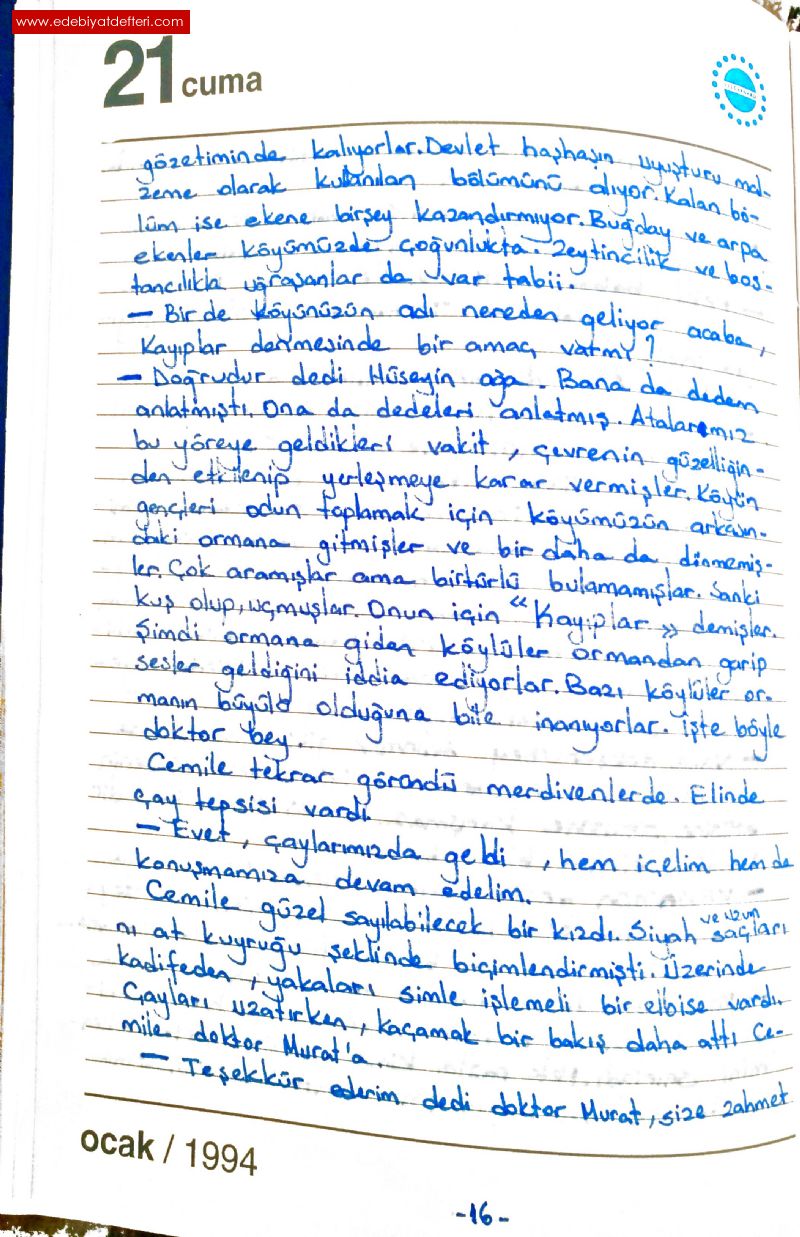 www.edebiyatdefteri.com
21 cuma
gözetiminde kalıyorlar. Devlet haşhaşın uyuşturu mal-
zeme olarak kullanılan bölümünü alıyor. Kalan bö-
lüm ise ekene birşey kazandırmıyor. Buğday ve arpa
ekenler köyümüzde çoğunlukta. Zeytincilik ve bos-
tancılıkla uğraşanlar da var tabii.
— Bir de köyünüzün adı nereden geliyor acaba,
Kayıplar denmesinde bir amaç varmı?
— Doğrudur dedi Hüseyin ağa. Bana da dedem
anlatmıştı. Ona da dedeleri anlatmış. Atalarımız
bu yöreye geldikleri vakit, çevrenin güzelliğin-
den etkilenip yerleşmeye karar vermişler. Köyün
gençleri odun toplamak için köyümüzün arkasın-
daki ormana gitmişler ve bir daha da dönmemiş-
ler. Çok aramışlar ama birtürlü bulamamışlar. Sanki
kuş olup, uçmuşlar. Onun için "Kayıplar" demişler.
Şimdi ormana giden köylüler ormandan garip
sesler geldiğini iddia ediyorlar. Bazı köylüler or-
manın büyülü olduğuna bile inanıyorlar. İşte böyle
doktor bey.
Cemile tekrar göründü merdivenlerde. Elinde
çay tepsisi vardı.
— Evet, çaylarımızda geldi, hem içelim hem de
konuşmamıza devam edelim.
Cemile güzel sayılabilecek bir kızdı. Siyah ve uzun saçları
nı at kuyruğu şeklinde biçimlendirmişti. Üzerinde
kadifeden, yakaları simle işlemeli bir elbise vardı.
Çayları uzatırken, kaçamak bir bakış daha attı Ce-
mile doktor Murat'a.
— Teşekkür ederim dedi doktor Murat, size zahmet
ocak / 1994
-16-